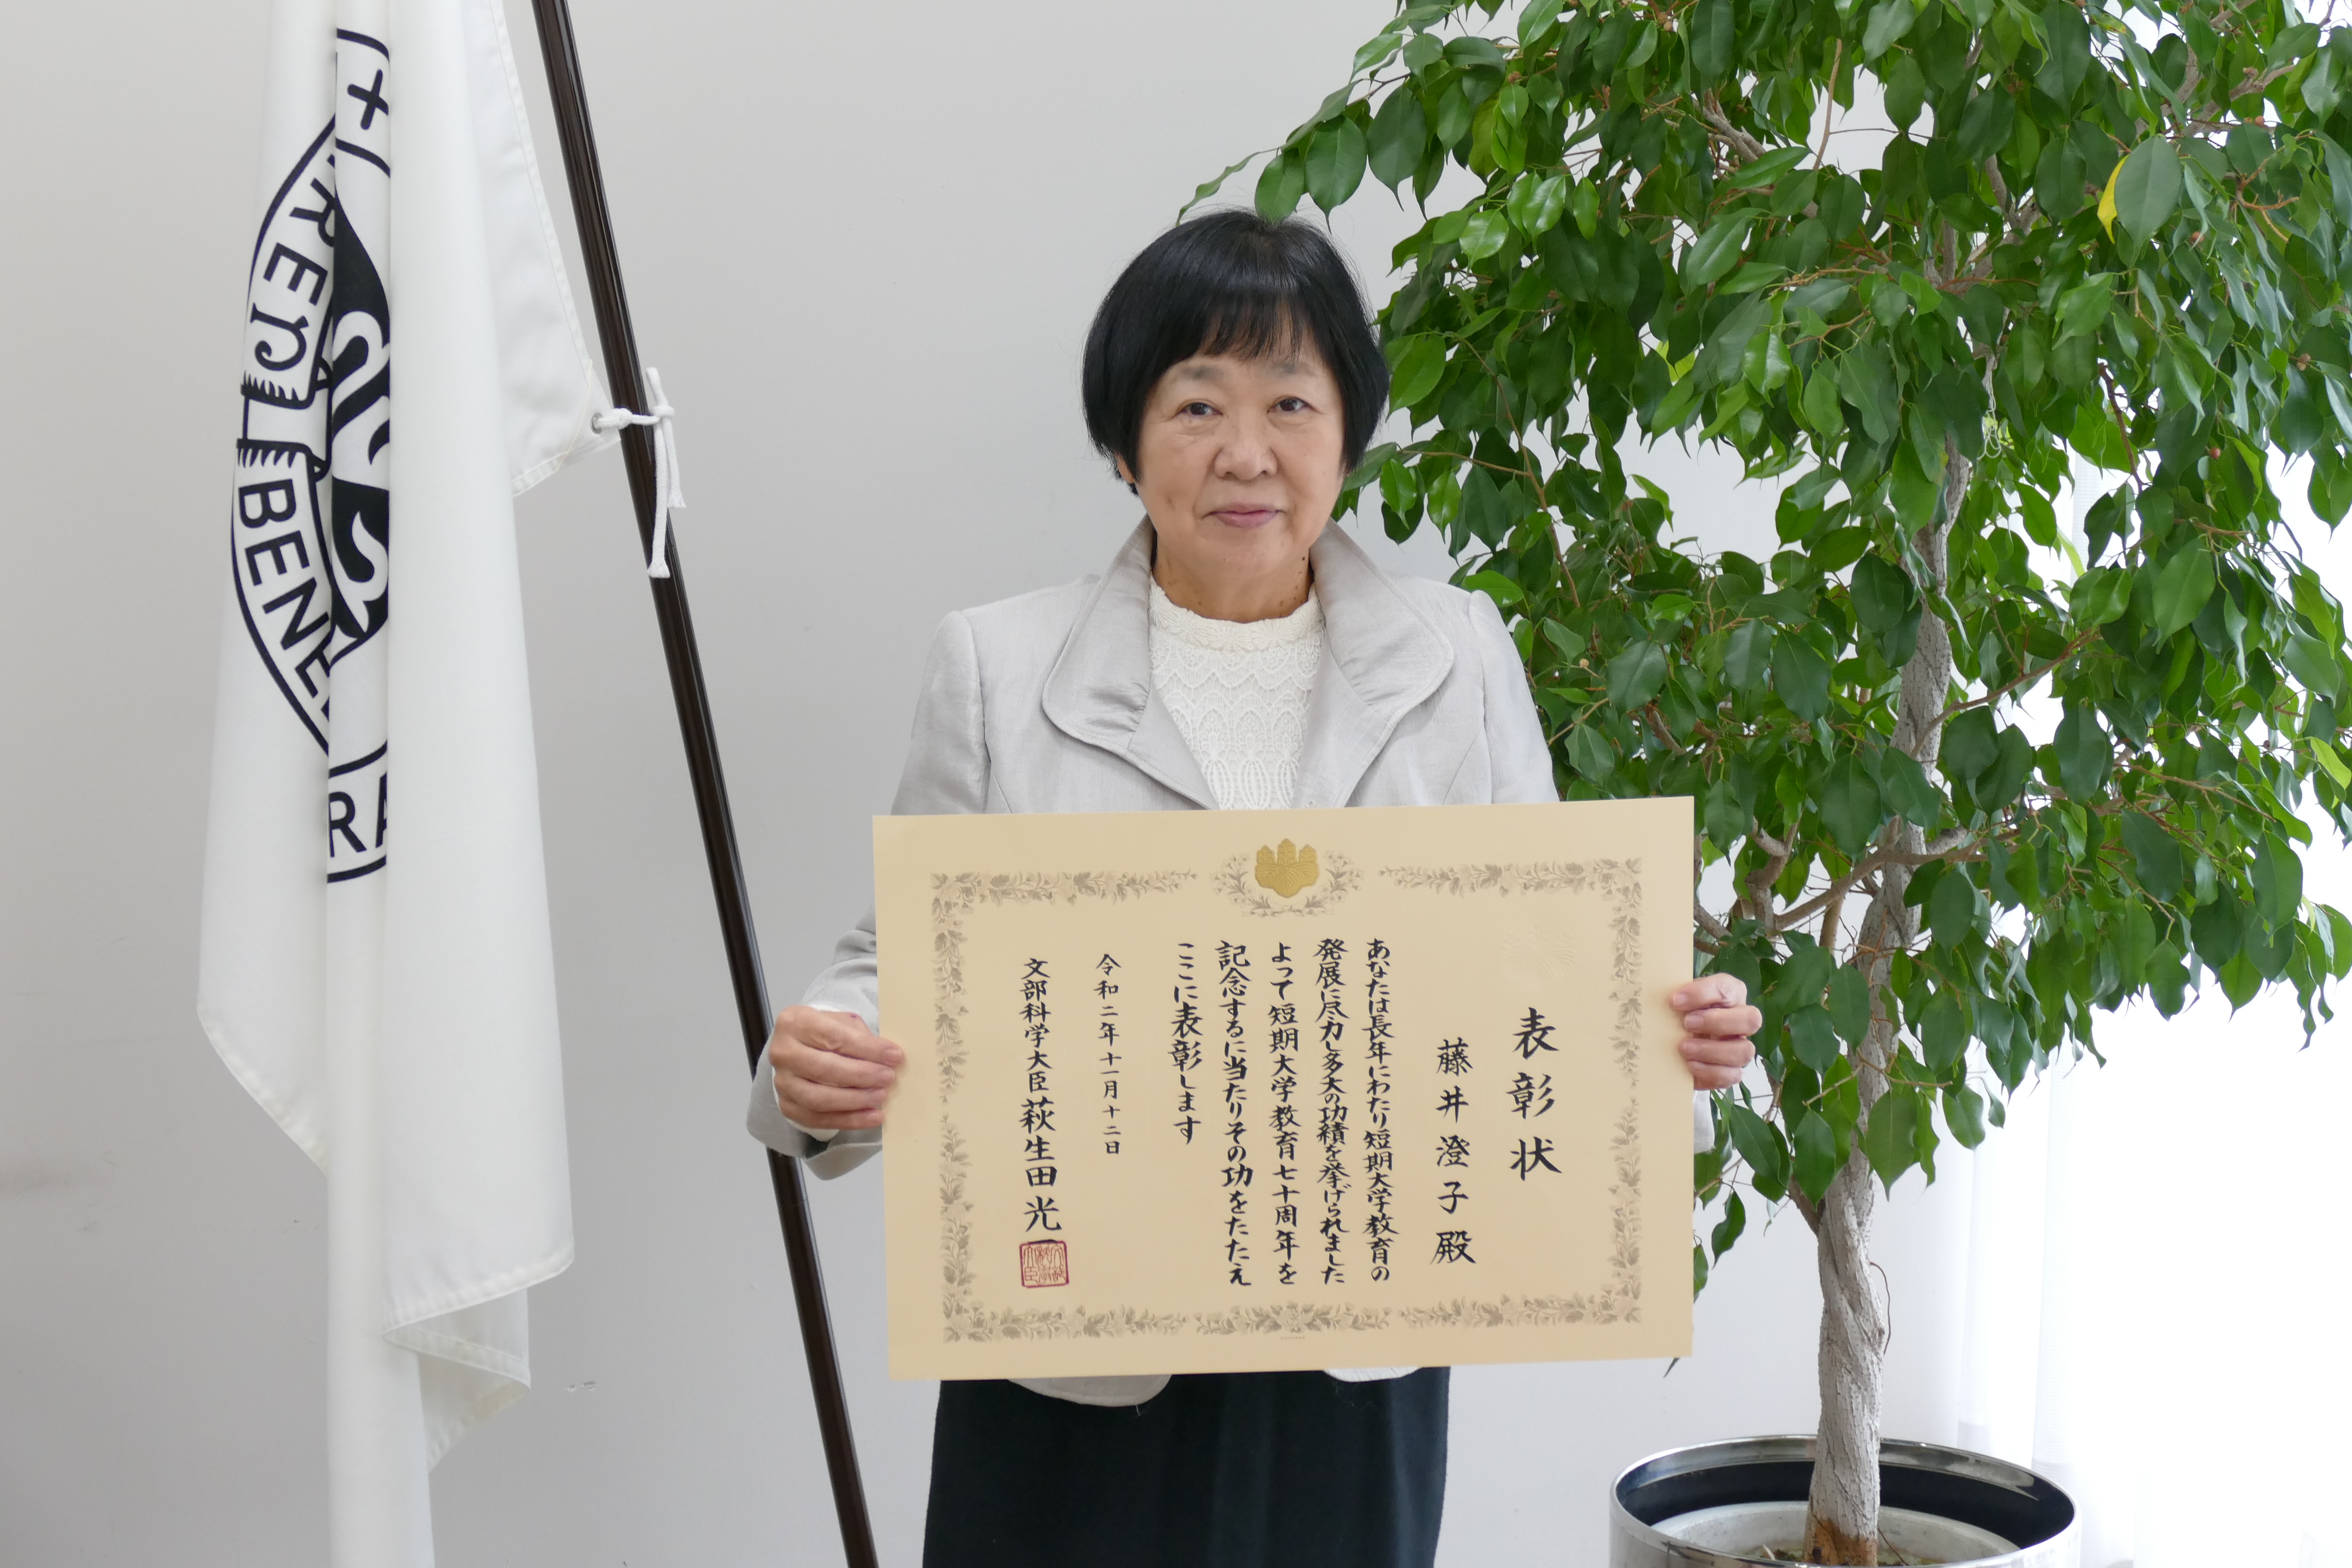 表彰状
藤井澄子殿
あなたは長年にわたり短期大学教育の
発展に尽力し多大の功績を挙げられました
よって短期大学教育七十周年を
記念するに当たりその功をたたえ
ここに表彰します
令和二年十一月十二日
文部科学大臣萩生田光一
BENE
RA